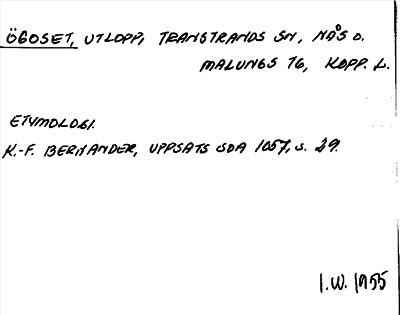 ÖGOSET, UTLOPP, TRANSTRANDS SN, NÅS O.
MALUNGS TG, KOPP. L.
ETYMOLOGI.
K.-F. BERNANDER, UPPSATS SOA 1057, S. 29.
I.W. 1955